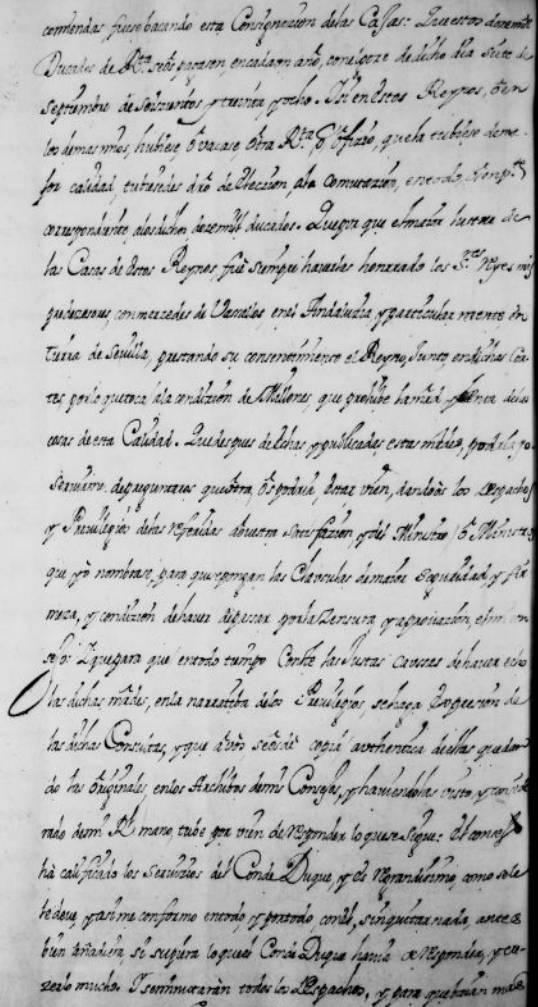 comiendas fuese bacando esta Consignacion delas Cassas: Que estos doze mill
Ducados de Rta. se os paguen en cada un año, con el goze de dicho dia siete de
septiembre de seiscientos y treinta y ocho. Y si en estos Reynos, ò en
los demas mios, hubiere, ò vacare, otra Rta. ò officio, que la tubiese de me-
jor calidad, tubiesedes dro. de eleccion, ala comutacion, en todo, ò en pte.
correspondiente, alos dichos doze mill ducados. Que por que el maior lustre de
las Casas de estos Reynos, fuè siempre haverlas honrrado los Sres. Reyes mis
predezesores, con mercedes de Vasallos, en el Andaluzia, y particular mente en
tierra de Sevilla, prestando su consentimiento el Reyno, Junto, en dichas Cor-
tes, por lo que toca ala condizion de Millones, que prohibe la mrd. y venta de las
cosas de esta Calidad. Que despues de echas, y publicadas estas mrdes, podria yo
servirme de preguntaros que otra, òs podria, estar vien, dandoòs los despachos
y Privilegios delas referidas à vuestra satisfazion, y del Ministro, ò Ministros
que yò nombrase, para que se pongan las Clausulas de maior seguridad, y fir-
meza, y condizion de haver de passar por la Zensura, y aprovacion, del mi con
sejo: Y que para que en todo tiempo Conste las Justas Caussas de haver echo
las dichas mrdes, en la narratiba delos Privilegios, se haga Expresion de
las dichas Consultas, y que à vòs, se òs dè copia authentica de ellas quedan-
do las originales, en los Archibos de mi Consejo, y haviendolas visto, y conside
rado de mi Rl. mano, tube por vien de responder lo que se sigue: El consejo
hà calificado los Servizios del Conde Duque, y es grandisimo, como se le
le deve, y asi me conformo en todo, y por todo, con èl, sin quitar nada, antes
bien añadiera, si supiera lo que el Conde Duque havia de responder, y cre-
zerlo mucho. Y se minutaràn todos los Despachos, y para que vaian mas